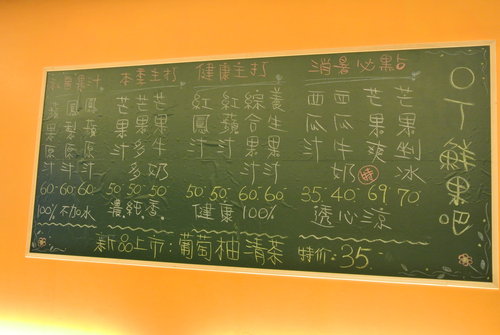 O丁鮮果吧
消暑必點
芒果剉冰 70
芒果爽 69 特
西瓜牛奶 40
西瓜汁 35
透心涼
健康主打
養生果汁 60
綜合果汁 60
紅蘋汁 50
紅鳳汁 50
健康100%
本季主打
芒果牛奶 50
芒果多多 50
芒果汁 50
濃純香。
果汁
鳳蘋原汁 60
鳳梨原汁 60
蘋果原汁 60
100%不加水
新品上市:葡萄柚清茶 特价:35